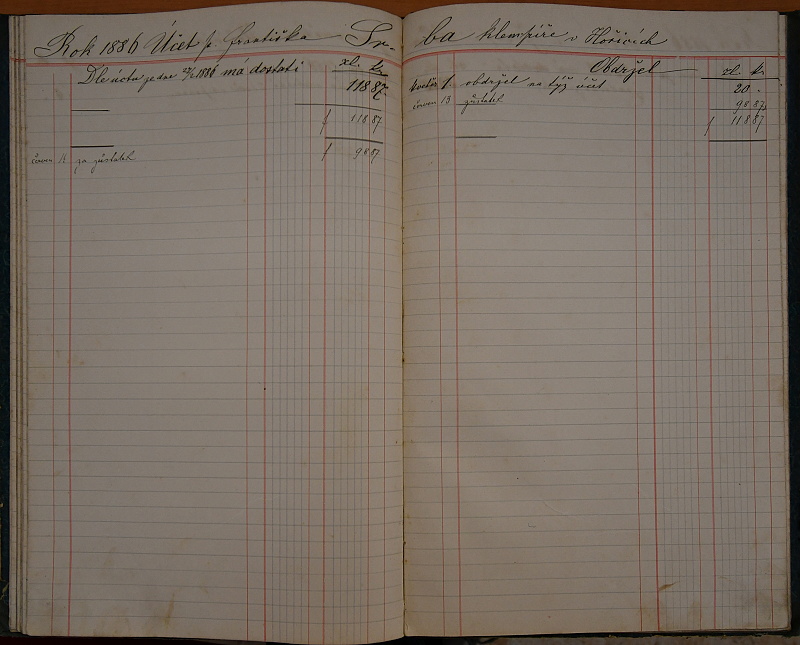 Rok 1886 Účet p. Františka Sr-
zl. k.
Dle účtu ze dne 27/2 1886 má dostati 118 87
f 118 87
červen 14 za zůstatek f 98 87
ba klempíře v Hořicích
Obdržel zl. k.
květen 1. obdržel na týž účet 20 -
červen 13 zůstatek 98 87
f 118 87